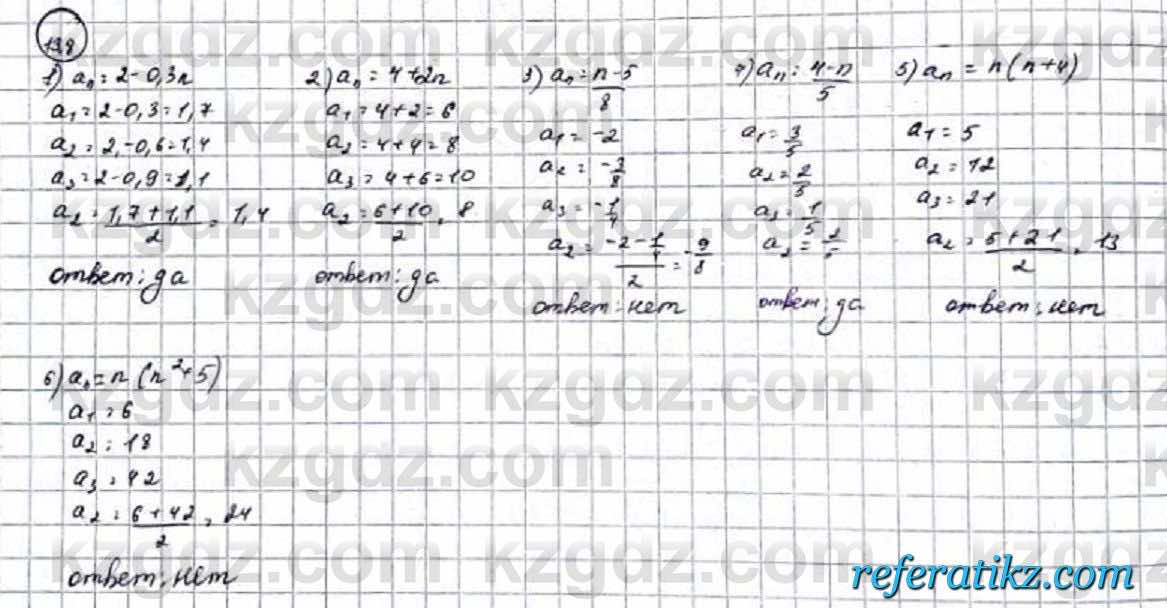 138
1) aₙ = 2 - 0,3n
a₁ = 2 - 0,3 = 1,7
a₂ = 2,-0,6 = 1,4
a₃ = 2 - 0,9 = 1,1
a₂ = (1,7 + 1,1)/2 = 1,4
ответ: да
2) aₙ = 4 + 2n
a₁ = 4 + 2 = 6
a₂ = 4 + 4 = 8
a₃ = 4 + 6 = 10
a₂ = (6 + 10)/2 = 8
ответ: да
3) aₙ = (n - 5)/8
a₁ = -2
a₂ = -3/8
a₃ = -1/4
a₂ = (-2 - 1/4)/2 = -9/8
ответ: нет
4) aₙ = (4 - n)/5
a₁ = 3/5
a₂ = 2/5
a₃ = 1/5
a₂ = 2/5
ответ: да
5) aₙ = n(n + 4)
a₁ = 5
a₂ = 12
a₃ = 21
a₂ = (5 + 21)/2 = 13
ответ: нет
6) aₙ = n(n² + 5)
a₁ = 6
a₂ = 18
a₃ = 42
a₂ = (6 + 42)/2 = 24
ответ: нет
kzgdz.com
referatikz.com